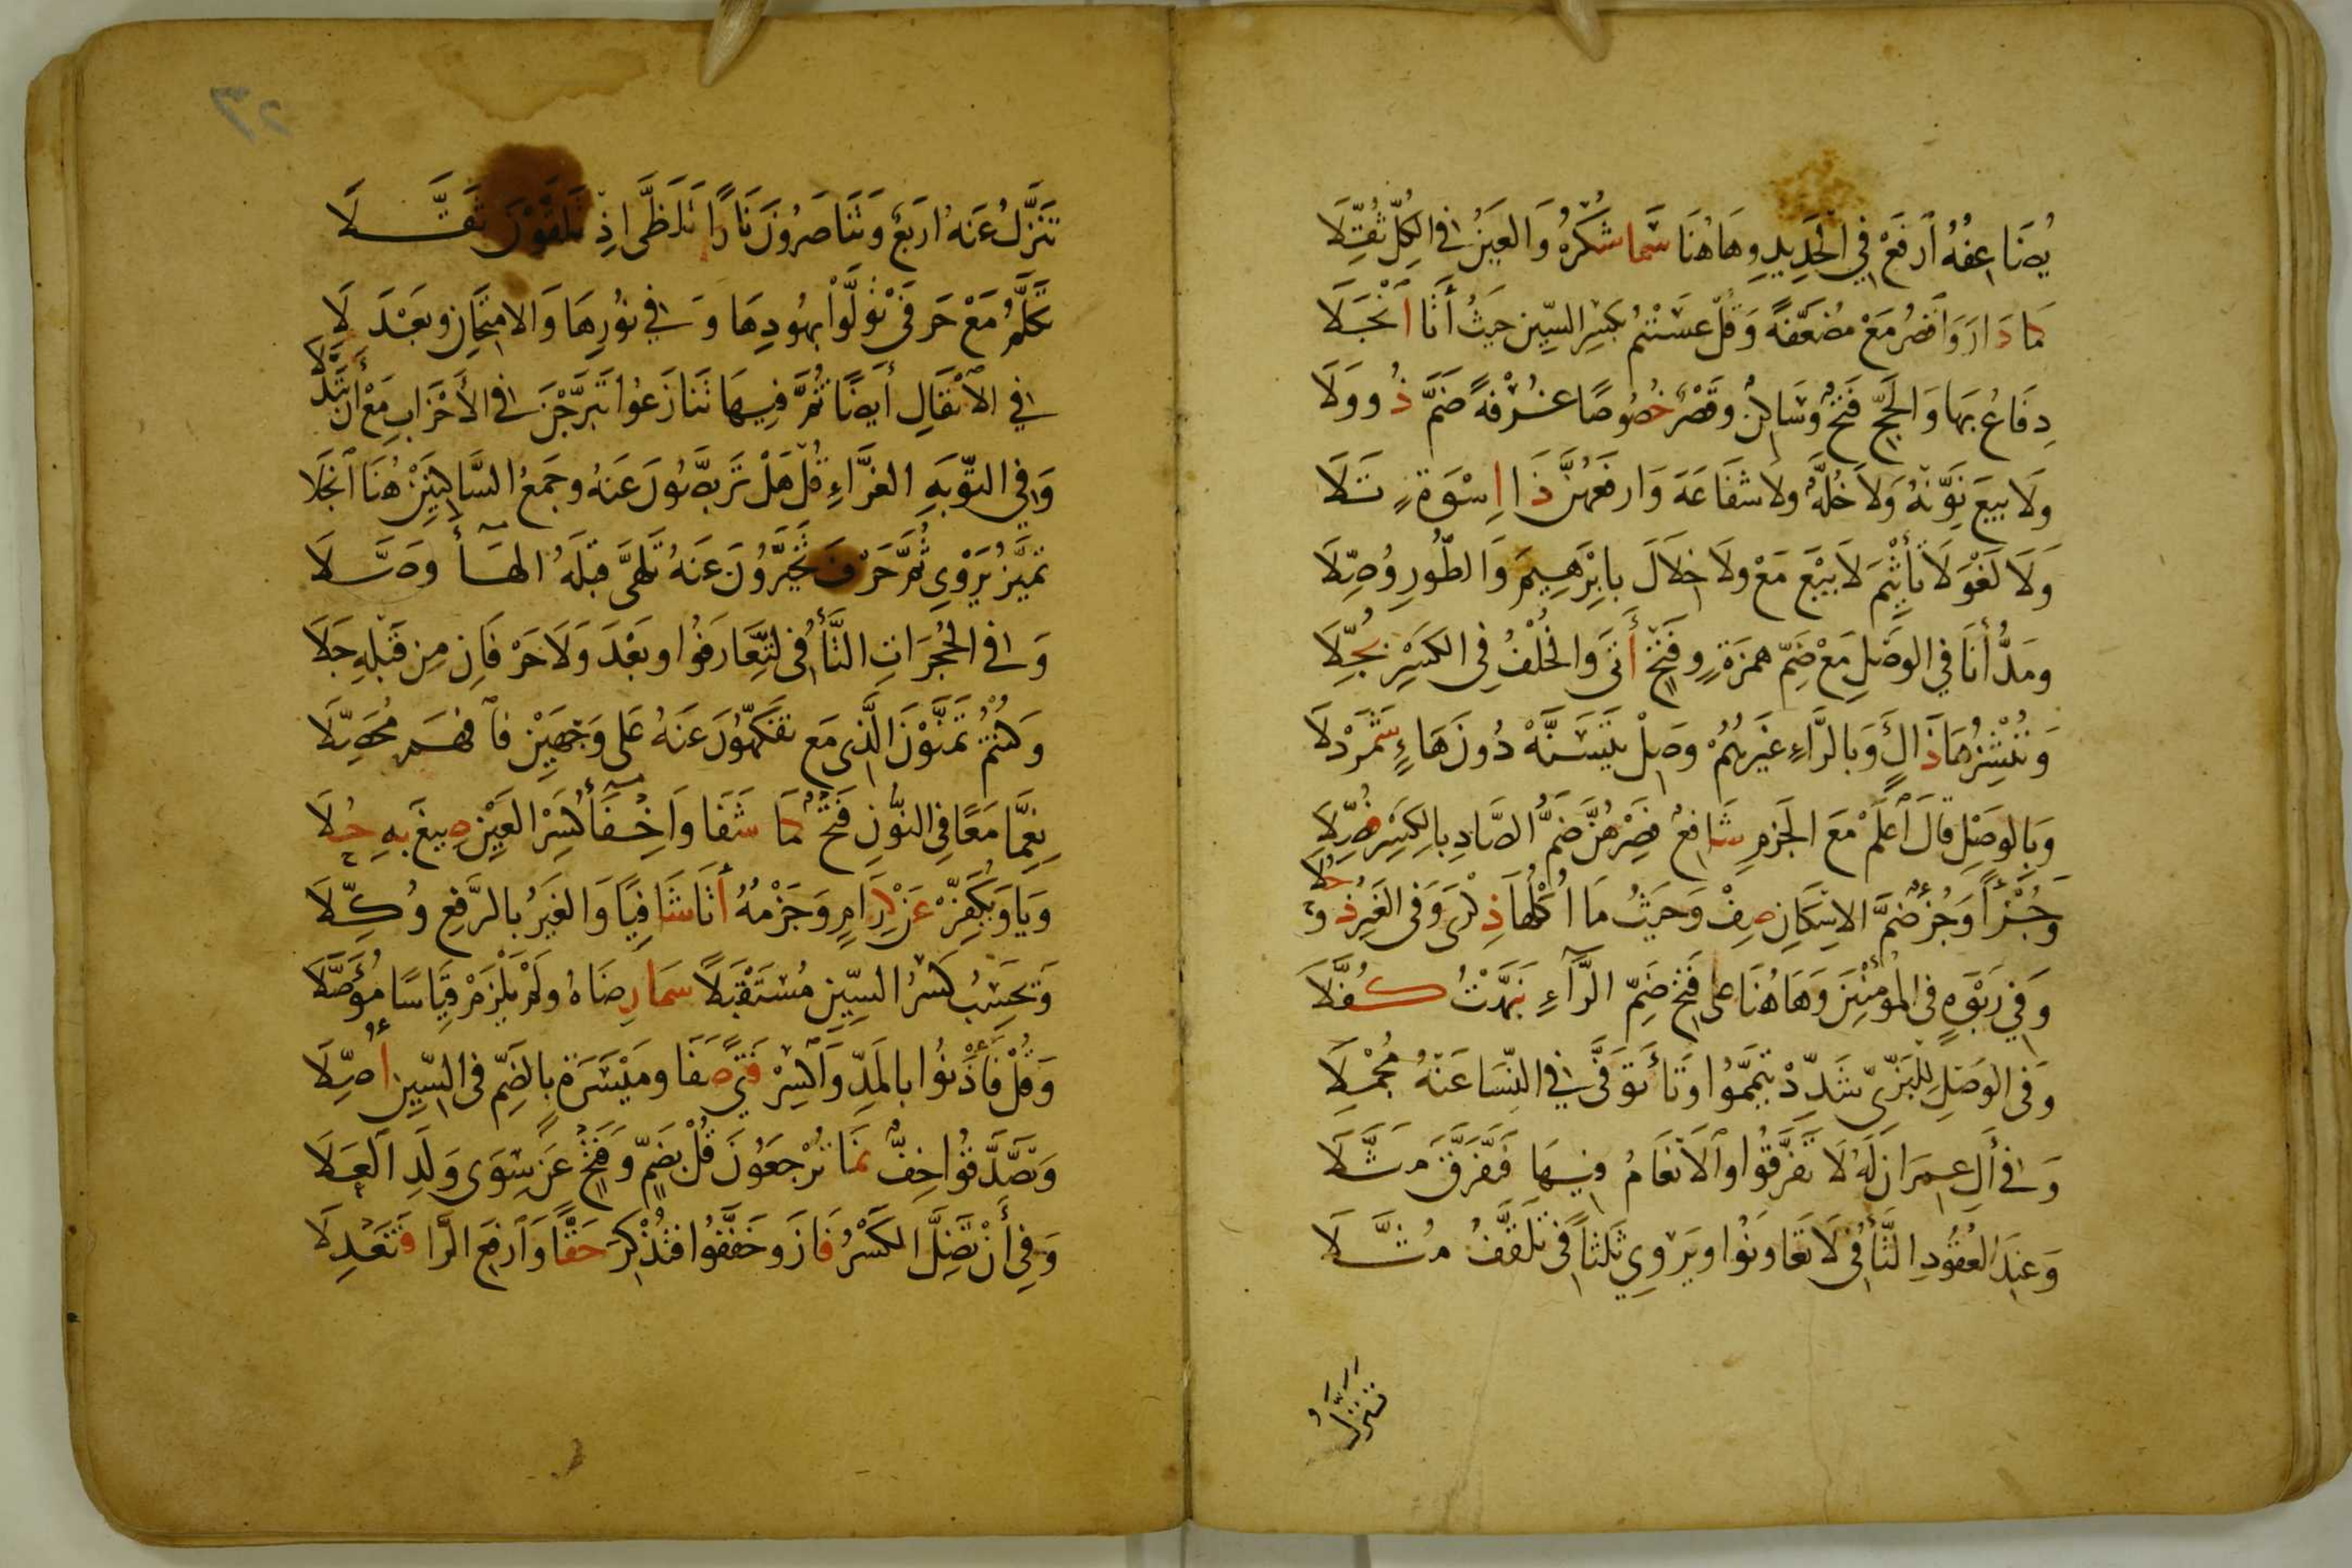 يُضَاعِفُهُ ٱرْفَعْ فِي الْحَدِيدِ وَهَاهُنَا سَمَا شُكْرُهُ وَالْعَيْنُ فِي الْكُلِّ ثُقِّلَا
كَمَا دَارَ وَاقْصُرْ مَعْ مُضَعَّفَةً وَقُلْ عَسَيْتُمْ بِكَسْرِ السِّينِ حَيْثُ أَتَا ٱنْجَلَا
دِفَاعُ بِهَا وَالْحَجِّ فَتْحٌ وَسَاكِنٌ وَقَصْرٌ خُصُوصًا غُرْفَةً ضَمَّ ذُو وَلَا
وَلَا بَيْعَ نَوِّنْهُ وَلَا خُلَّةٌ وَلَا شَفَاعَةَ وَارْفَعْهُنَّ ذَا اِسْوَةٍ تَلَا
وَلَا لَغْوَ لَا تَأْثِيمَ لَا بَيْعَ مَعْ وَلَا خِلَالَ بِإِبْرَهِيمَ وَالطُّورِ وُصِّلَا
وَمَدُّ أَنَا فِي الْوَصْلِ مَعْ ضَمِّ هَمْزَةٍ وَفَتْحٍ أَتَى وَالْخُلْفُ فِي الْكَسْرِ بُجِّلَا
وَنُنْشِزُهَا ذَالٍ وَبِالرَّاءِ غَيْرُهُمْ وَصِلْ يَتَسَنَّهْ دُونَ هَاءٍ شَمَرْدَلَا
وَبِالْوَصْلِ قَالَ ٱعْلَمْ مَعَ الْجَزْمِ شَافِعٌ فَصُرْهُنَّ ضَمُّ الصَّادِ بِالْكَسْرِ فُصِّلَا
وَجُزْءًا وَجُزْءٌ ضَمَّ الِاسْكَانَ صِفْ وَحَيْثُ مَا أُكْلُهَا ذِكْرَى وَفِي الْغَيْرِ ذُو حُلَا
وَفِي رَبْوَةٍ فِي الْمُؤْمِنِينَ وَهَاهُنَا عَلَى فَتْحِ ضَمِّ الرَّاءِ نَبَّهْتُ كُفَّلَا
وَفِي الْوَصْلِ لِلْبَزِّيِّ شَدِّدْ تَيَمَّمُوا وَتَاءَ تَوَفَّى فِي النِّسَا عَنْهُ مُجْمِلَا
وَفِي آلِ عِمْرَانَ لَهُ لَا تَفَرَّقُوا وَٱلْأَنْعَامُ فِيهَا فَتَفَرَّقَ مَثَّلَا
وَعِنْدَ الْعُقُودِ التَّاءُ فِي لَا تَعَاوَنُوا وَيَرْوِي ثَلَثًا فِي تَلَقَّفُ مُثَّلَا
تَنَزَّلُ
تَنَزَّلُ عَنْهُ أَرْبَعٌ وَتَنَاصَرُونَ نَارًا تَلَظَّى اِذْ تَلَقَّوْنَ ثَقَّلَا
تَكَلَّمُ مَعْ حَرْفَيْ تَوَلَّوْا بِهُودِهَا وَفِي نُورِهَا وَالِامْتِحَانِ وَبَعْدَ لَا
فِي الْأَنْفَالِ أَيْضًا ثُمَّ فِيهَا تَنَازَعُوا تَبَرَّجْنَ فِي الْأَحْزَابِ مَعْ أَنْ تَبَدَّلَا
وَفِي التَّوْبَةِ الْغَرَّاءِ قُلْ هَلْ تَرَبَّصُونَ عَنْهُ وَجَمْعُ السَّاكِنَيْنِ هُنَا ٱنْجَلَا
تَمَيَّزُ يَرْوِي ثُمَّ حَرْفَ تَخَيَّرُونَ عَنْهُ تَلَهَّى قَبْلَهُ الْهَاءَ وَصَّلَا
وَفِي الْحُجُرَاتِ التَّاءُ فِي لِتَعَارَفُوا وَبَعْدَ وَلَا حَرْفَانِ مِنْ قَبْلِهِ جَلَا
وَكُنْتُمْ تَمَنَّوْنَ الَّذِي مَعْ تَفَكَّهُونَ عَنْهُ عَلَى وَجْهَيْنِ فَٱفْهَمْ مُحَصِّلَا
نِعِمَّا مَعًا فِي النُّونِ فَتْحٌ كَمَا شَفَا وَاِخْفَاءُ كَسْرِ الْعَيْنِ صِيغَ بِهِ حُلَا
وَيَا وَيُكَفِّرْ عَنْ كِرَامٍ وَجَزْمُهُ أَتَا شَافِيًا وَالْغَيْرُ بِالرَّفْعِ وُكِّلَا
وَيَحْسِبُ كَسْرُ السِّينِ مُسْتَقْبَلًا سَمَا رِضَاهُ وَلَمْ يَلْزَمْ قِيَاسًا مُؤَصَّلَا
وَقُلْ فَأْذَنُوا بِالْمَدِّ وَٱكْسِرْ فَتًى صَفَا وَمَيْسَرَةٍ بِالضَّمِّ فِي السِّينِ أُصِّلَا
وَتَصَّدَّقُوا خِفٌّ نَمَا تُرْجَعُونَ قُلْ بِضَمٍّ وَفَتْحٍ عَنْ سِوَى وَلَدِ ٱلْعَلَا
وَفِي أَنْ تَضِلَّ الْكَسْرُ فَازَ وَخَفَّفُوا فَتُذْكِرَ حَقًّا وَٱرْفَعِ الرَّا فَتَعْدِلَا